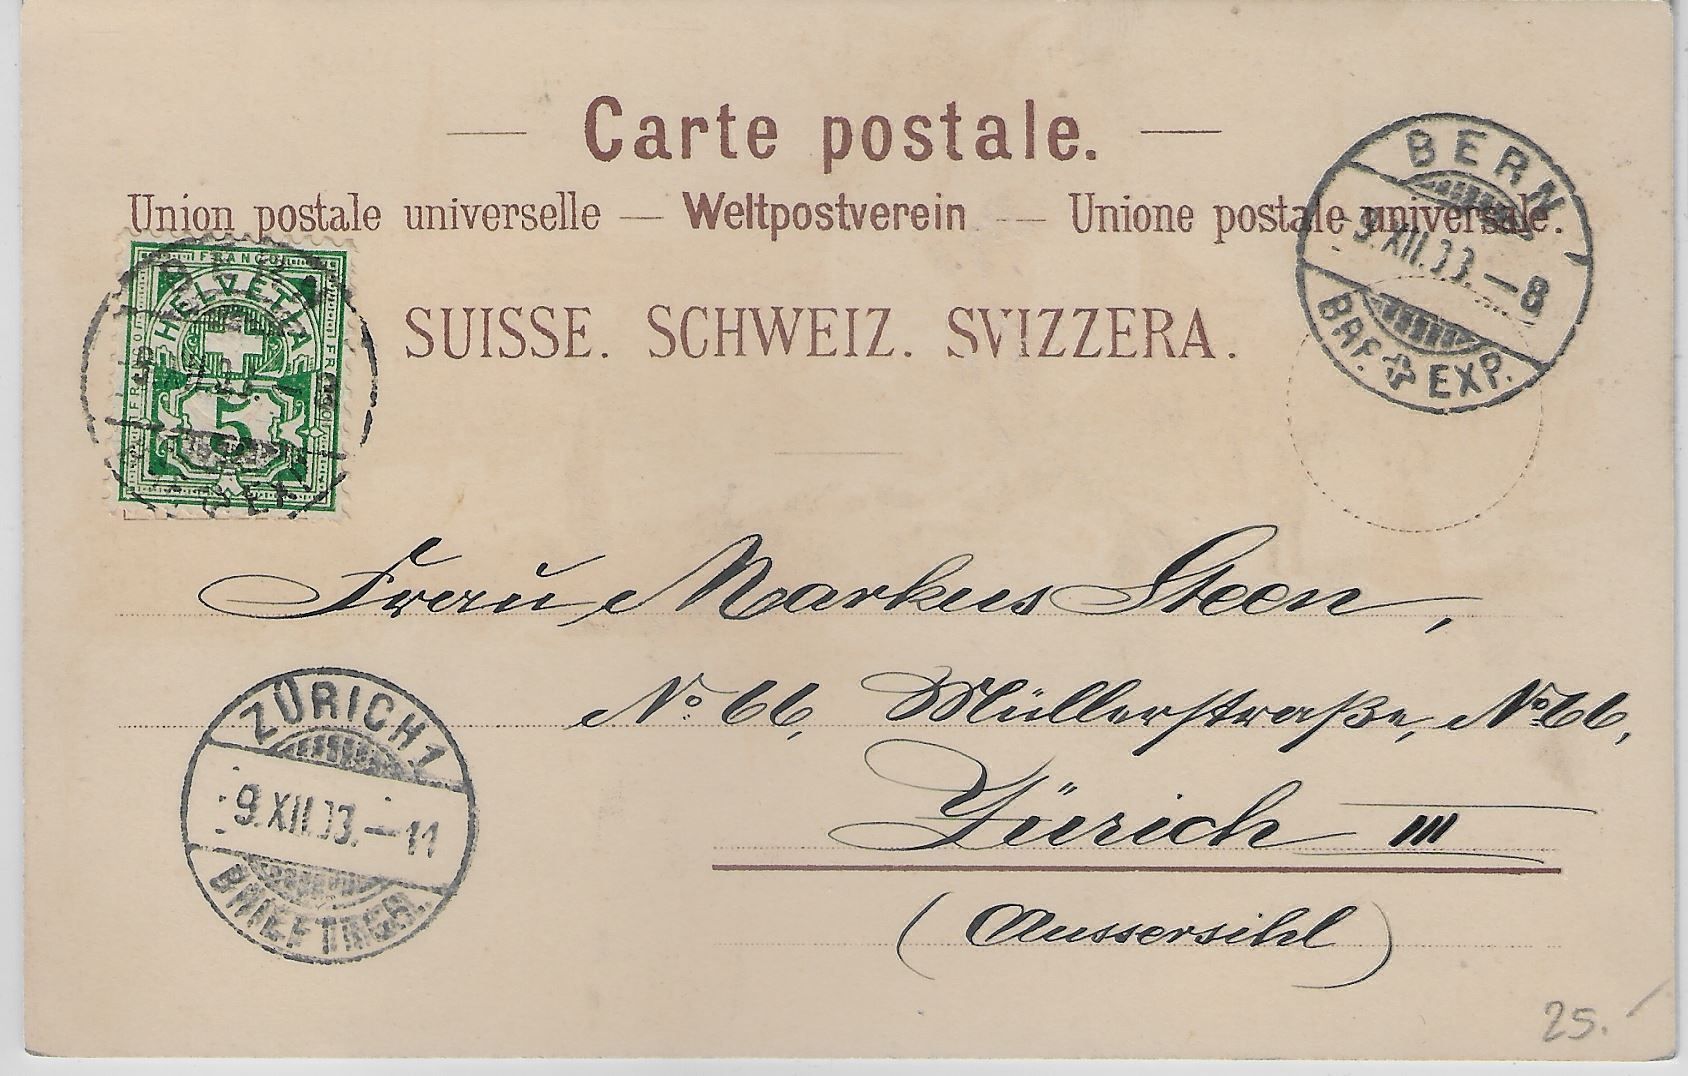 Carte postale.
Union postale universelle — Weltpostverein — Unione postale universale.
SUISSE. SCHWEIZ. SVIZZERA.
BERN
9.XII.03.—8
BRF. EXP.
FRANCO
HELVETIA
5
Frau Markus Steen,
No 66, Müllerstraße, No 66,
Zürich III
(Aussersihl)
ZÜRICH 1
9.XII.03.—11
BRIEFTRÄGER.
25.